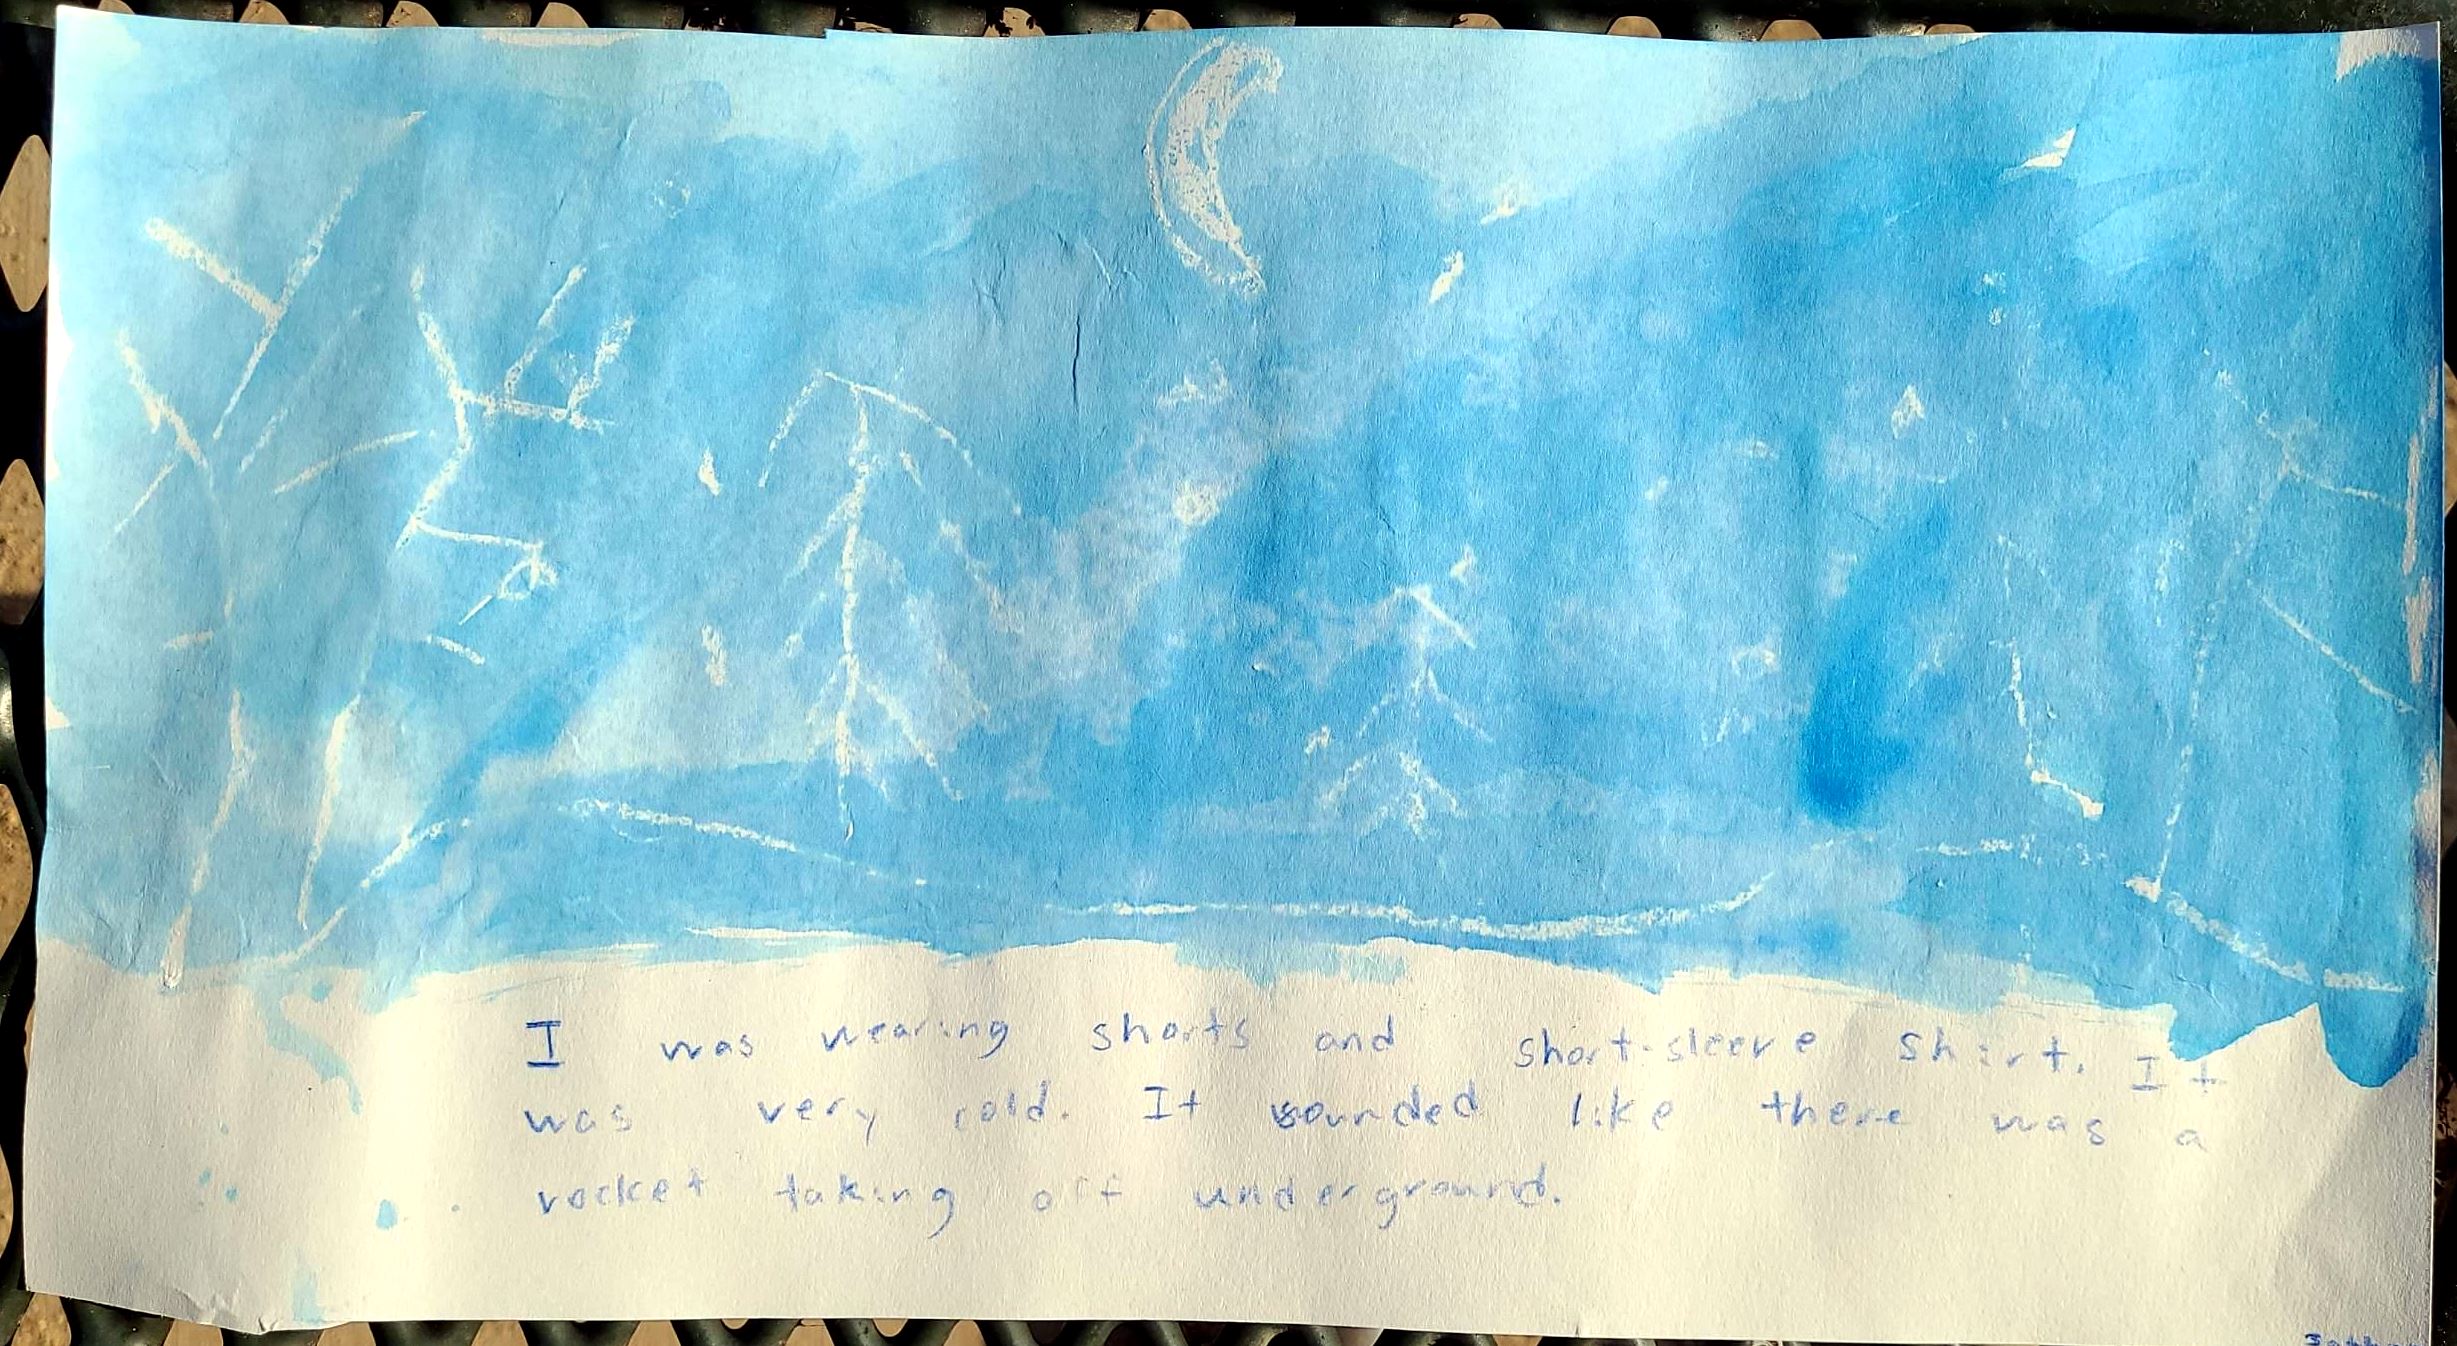 I was wearing shorts and short-sleeve shirt. It
was very cold. It sounded like there was a
rocket taking off underground.